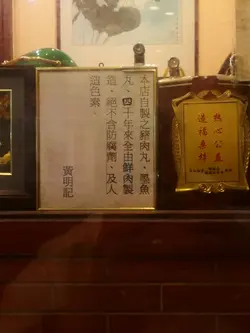 本店自製之豬肉丸、墨魚
丸、四十年來全由鮮肉製
造，絕不含防腐劑，及人
造色素。
黃明記
熱心公益
造福桑梓